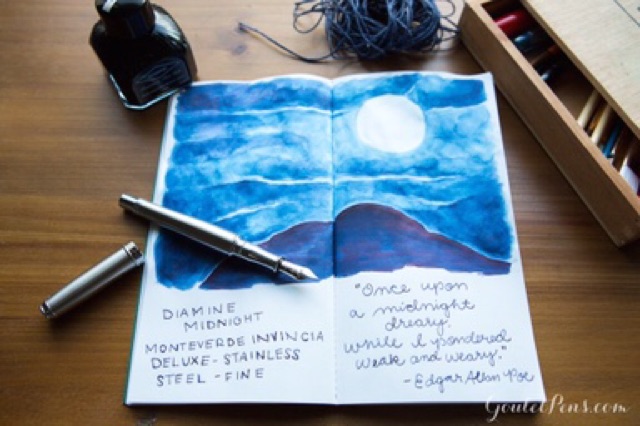 DIAMINE
MIDNIGHT
MONTEVERDE INVINCIA
DELUXE - STAINLESS
STEEL - FINE
"Once upon
a midnight
dreary,
while I pondered
weak and weary."
- Edgar Allan Poe
GouletPens.com